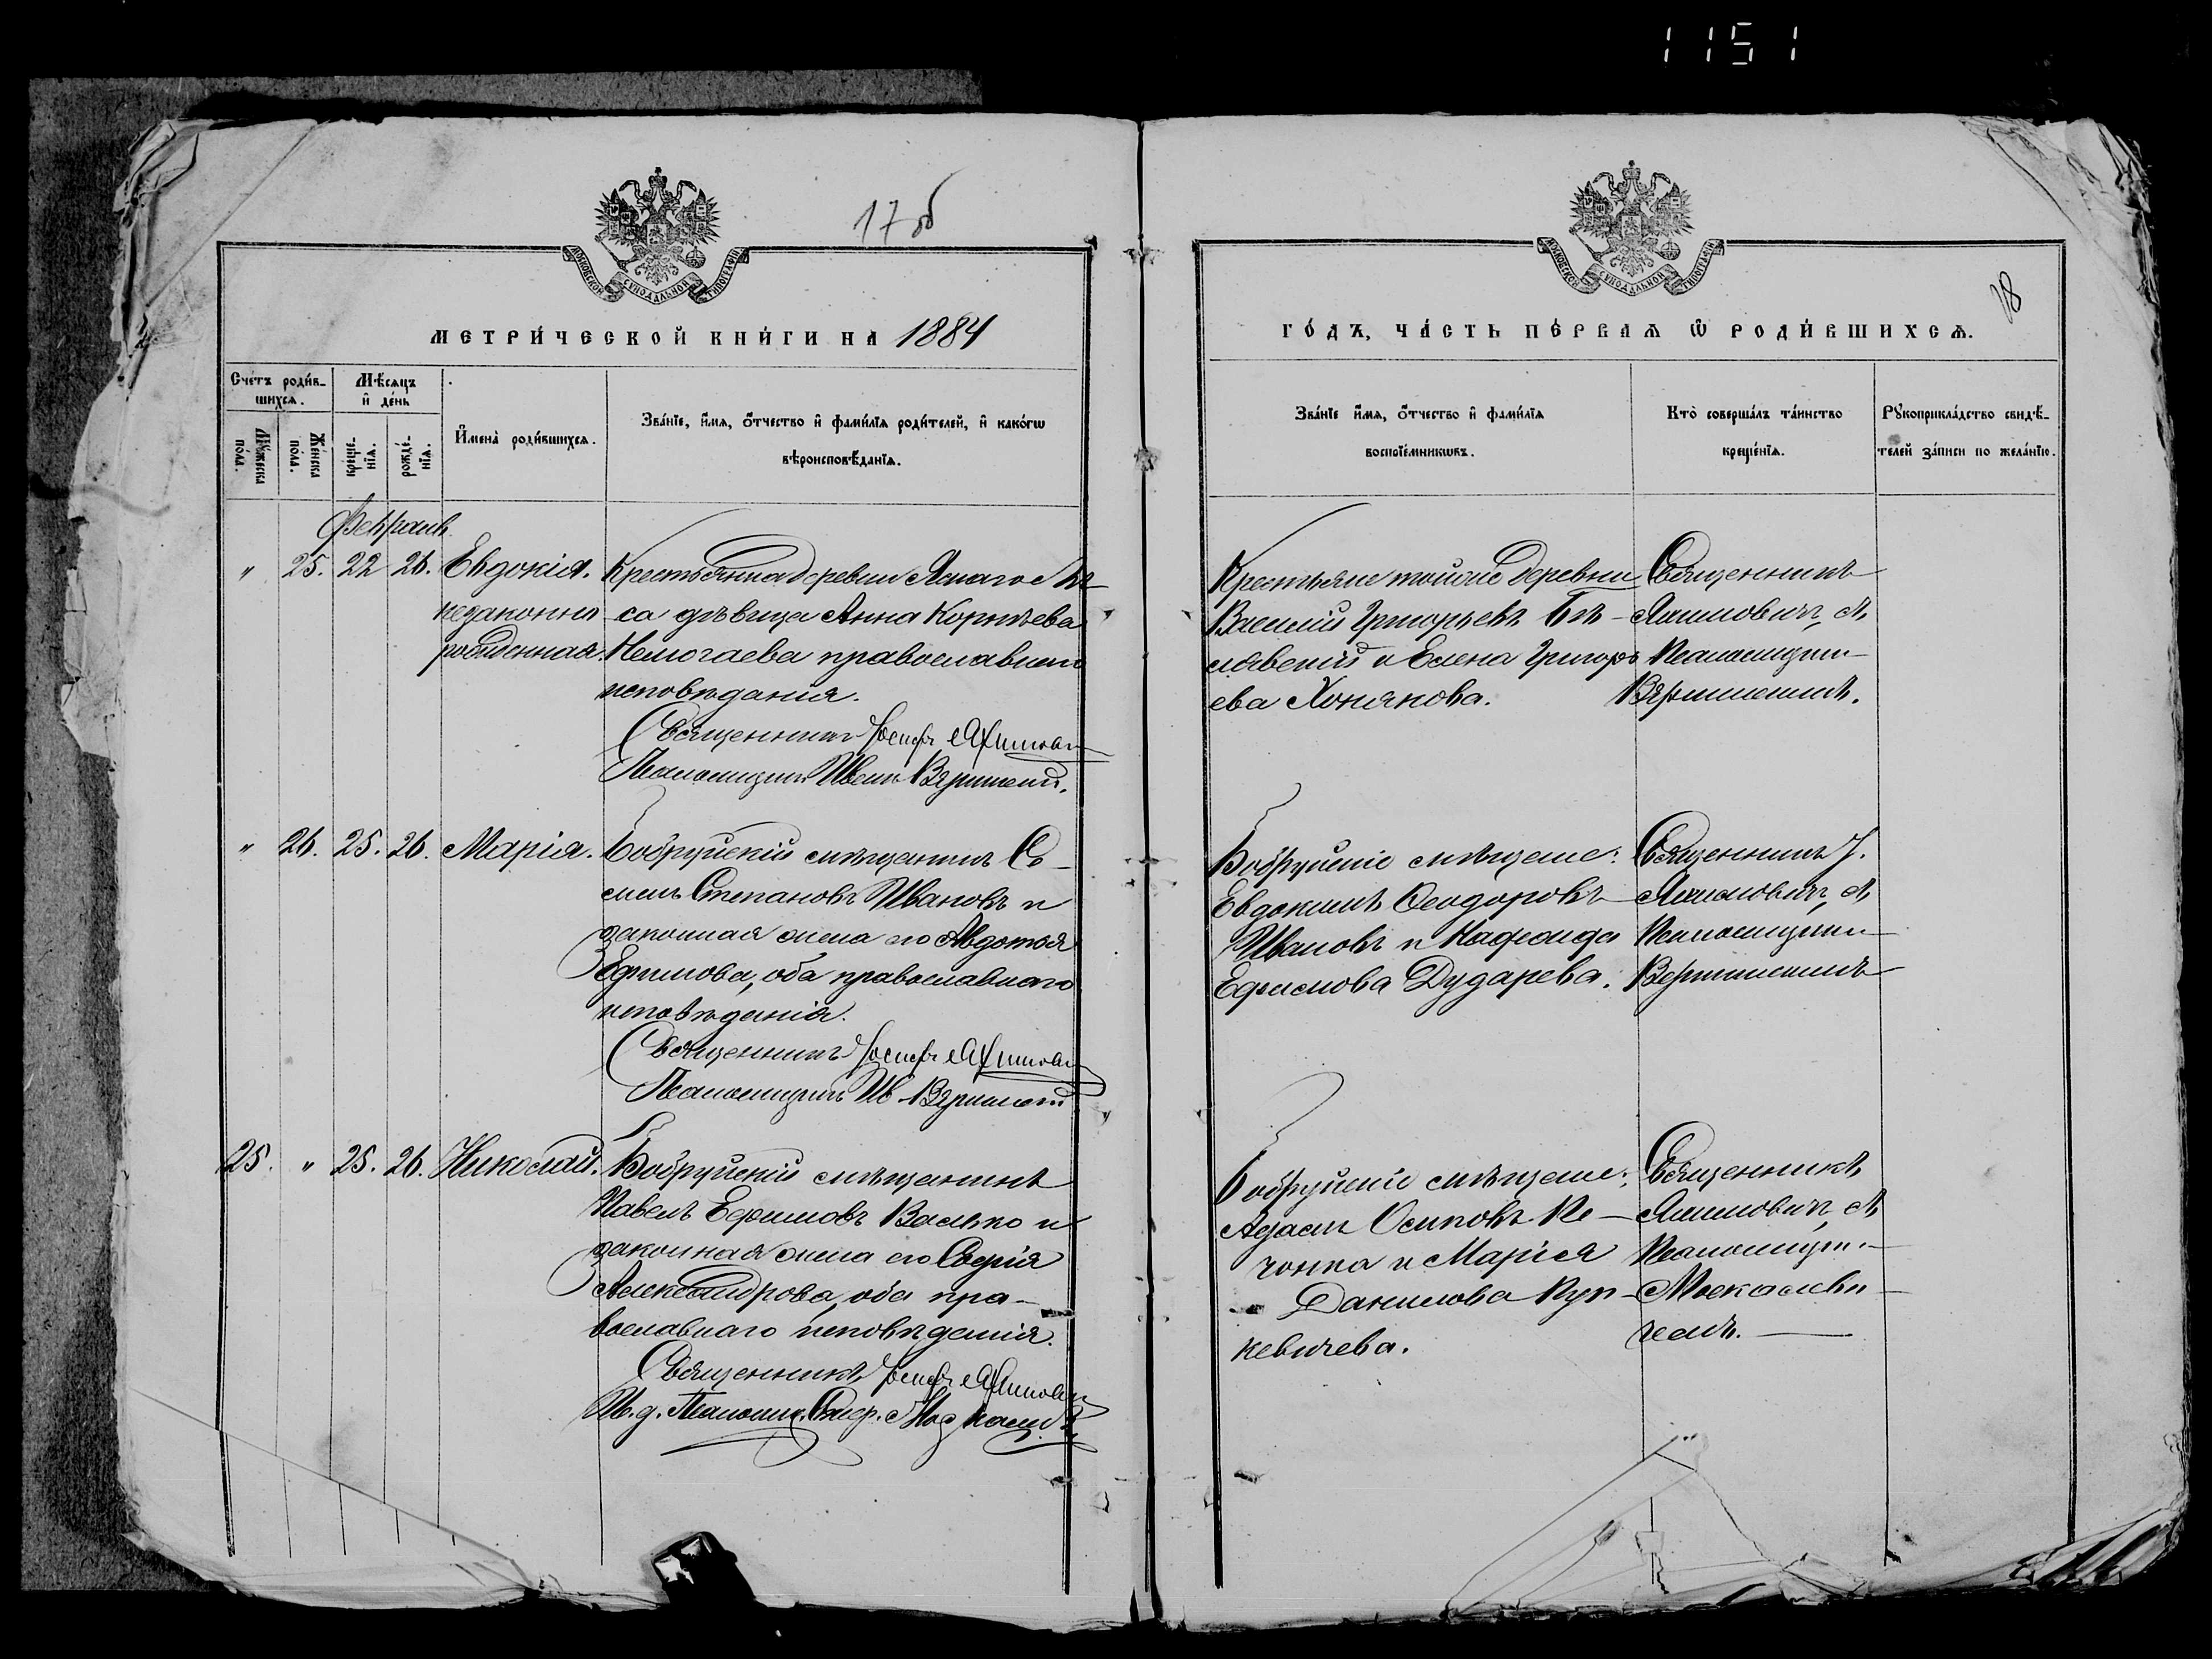 1151
17 об
18
МОСКОВСКОЙ СѴНОДАЛЬНОЙ ТИПОГРАФІИ
МЕТРИ́ЧЕСКОЙ КНИ́ГИ НА 1884
Сче́тъ роди́в-
шихся.
Мѣ́сяцъ
и҆ де́нь
Мꙋ́жеска
по́ла.
Же́нска
по́ла.
креще́-
нїѧ.
рожде́-
нїѧ.
И҆мена̀ роди́вшихсѧ.
Зва́нїе, и҆́мѧ, ѻ҆́тчество и҆ фами́лїѧ роди́телей, и҆ како́гѡ
вѣроисповѣ́данїѧ.
Февраль
" 25. 22 26. Евдокія. Крестьянка деревни Яснаго Лѣ-
незаконно са дѣвица Анна Корнѣева
рожденная. Немогаева православнаго
исповѣданія.
Священникъ Іосифъ Яхимович
Псаломщикъ Иванъ
" 26. 25. 26. Марія. Бобруйскій мѣщанинъ Се-
менъ Степановъ Ивановъ и
законная жена его Авдотья
Ефимова, оба православнаго
исповѣданія.
Священникъ Іосифъ Яхимович
Псаломщикъ Ив.
25. " 25. 26. Николай. Бобруйскій мѣщанинъ
Павелъ Ефимовъ Валько и
законная жена его Софія
Александрова, оба пра-
вославнаго исповѣданія.
Священникъ Іосифъ Яхимович
И. д. Псаломщ.
МОСКОВСКОЙ СѴНОДАЛЬНОЙ ТИПОГРАФІИ
ГО́ДЪ, ЧА́СТЬ ПЕ́РВАѦ Ѡ҆ РОДИ́ВШИХСѦ.
Зва́нїе и҆́мѧ, ѻ҆́тчество и҆ фами́лїѧ
воспрїе́мникѡвъ.
Кто̀ соверша́лъ та́инство
креще́нїѧ.
Рꙋкоприкла́дство свидѣ́-
телей за́писи по жела́нїю.
Крестьяне тойже деревни
Василій Григорьевъ Бѣ-
лявскій и Елена Григорь
ева Хонякова.
Священникъ
Яхимовичъ съ
Псаломщик-
Бобруйскіе мѣщане:
Евдокимъ Ѳеодоровъ
Ивановъ и
Ефимова Дударева.
Священникъ І.
Яхимовичъ съ
Псаломщик
Бобруйскіе мѣщане:
Адамъ Осиповъ Пе-
чонка и Марія
Данилова Куп-
кевичева.
Священникъ
Яхимовичъ съ
Псаломщик.
Москалеви-
чемъ.